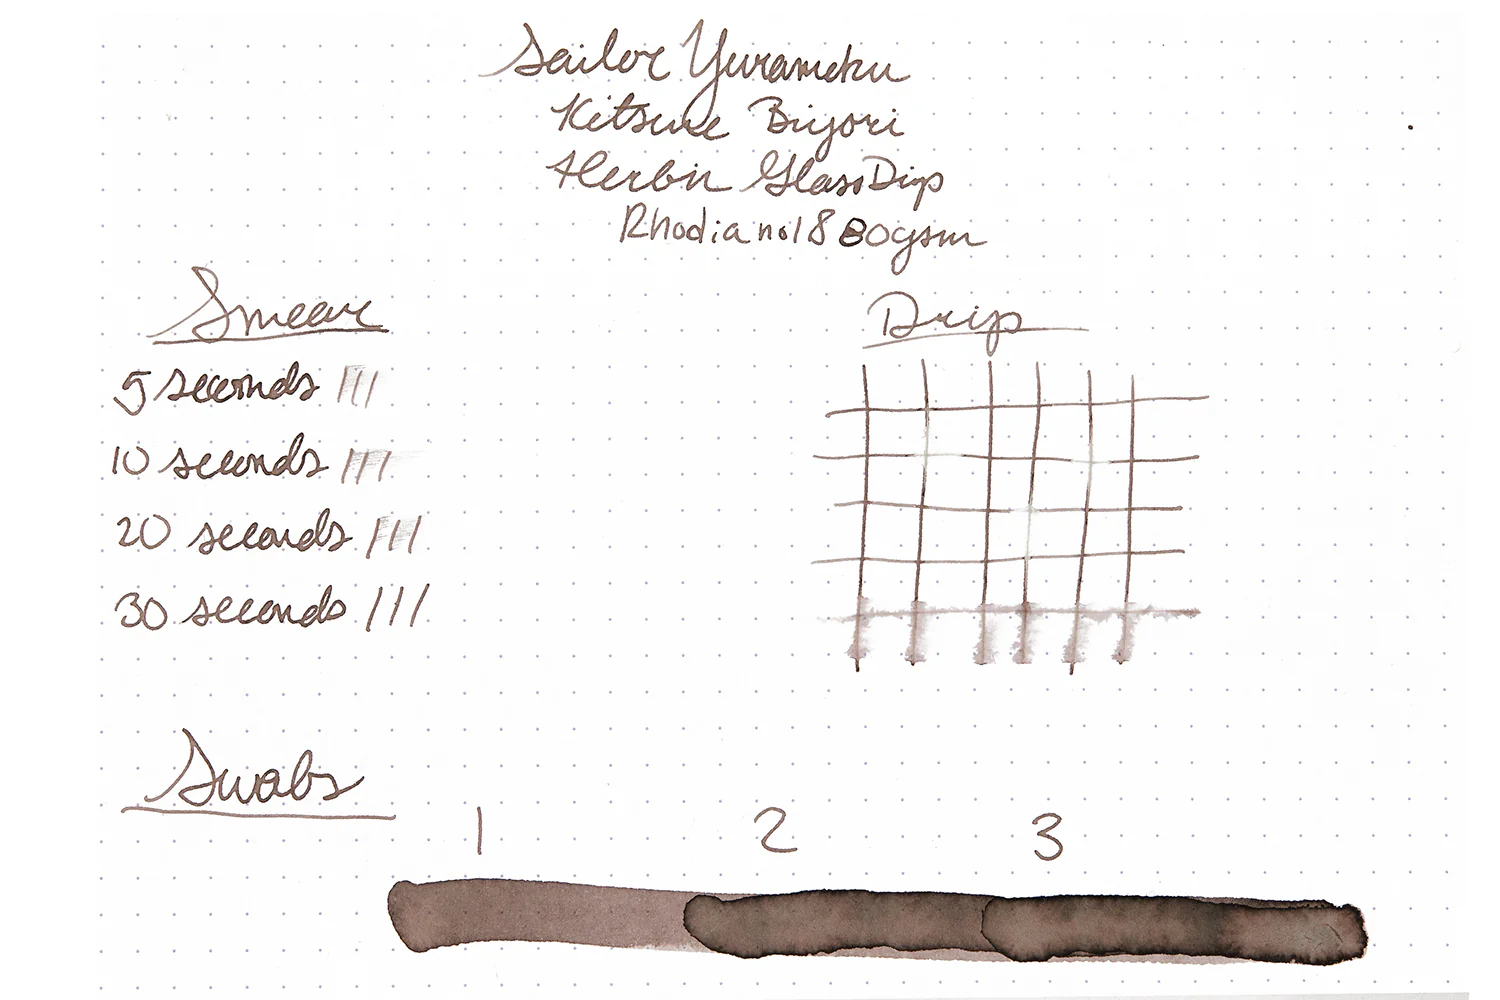 Sailor Yurameku
Kitsune Biyori
Herbin Glass Dip
Rhodia no18 80gsm
Smear
Drip
5 seconds
10 seconds
20 seconds
30 seconds
Swabs
1 2 3